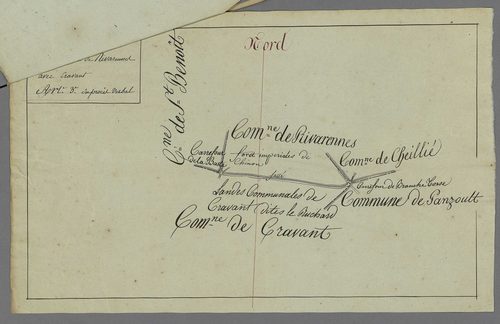 de Rivarennes
avec Cravant
Art. 3e
Nord
Cne de St. Benoit
Comne de Rivarennes
Carrefour
de la
foret imperiales de
Chinon
Comne de Cheillié
Carrefour de Branche Torse
Landes Communales de
Cravant dites le Ruchard
Commune de Panzoult
Comne de Cravant